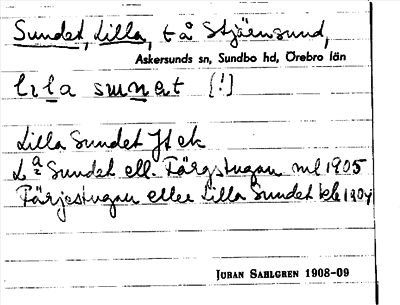 Sundet, Lilla, t å Stjärnsund,
Askersunds sn, Sundbo hd, Örebro län
lila sunət [!]
Lilla Sundet Jt ek
La Sundet ell. Färgstugan ml 1905
Färjestugan eller Lilla Sundet kb 1904
JOHAN SAHLGREN 1908-09